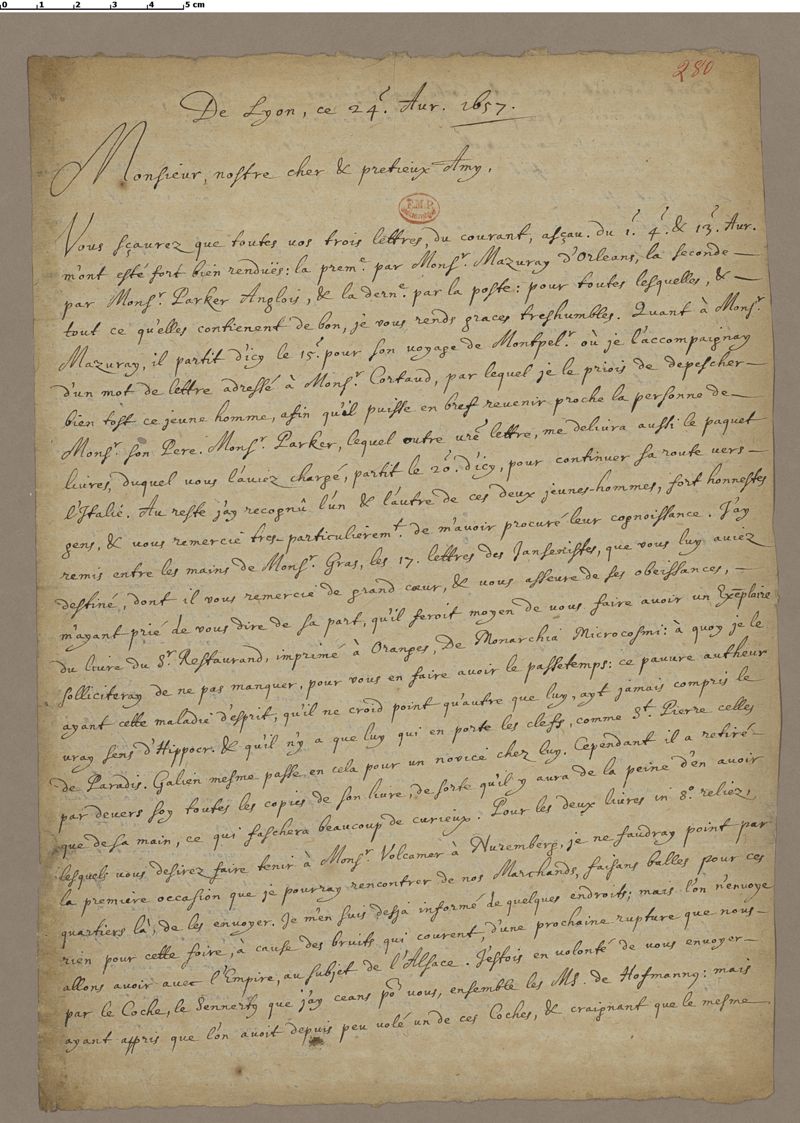 0 1 2 3 4 5 cm
280
De Lyon, ce 24e. Avr. 1657.
Monsieur, nostre cher & pretieux Amy,
Vous sçaurez que toutes vos trois lettres, du courant, asçau. du 1r. 4e. & 13e. Avr.
m'ont esté fort bien renduës: la preme. par Monsr. Mazuray d'Orleans, la seconde—
par Monsr. Parker Anglois, & la derne. par la poste: pour toutes lesquelles, &—
tout ce qu'elles contienent de bon, je vous rends graces treshumbles. Quant à Monsr.
Mazuray, il partit d'icy le 15e. pour son voyage de Montpelr. où je l'accompaignay
d'un mot de lettre adressé à Monsr. Cortaud, par lequel je le priois de depescher—
bien tost ce jeune homme, afin qu'il puisse en bref revenir proche la personne de—
Monsr. son Pere. Monsr. Parker, lequel outre vre. lettre, me delivra aussi le paquet
livres, duquel vous l'aviez chargé, partit le 20e. d'icy, pour continuer sa route vers—
l'Italie. Au reste j'ay recognû l'un & l'autre de ces deux jeunes-hommes, fort honnestes
gens, & vous remercie tres-particulieremt. de m'avoir procuré leur cognoissance. J'ay
remis entre les mains de Monsr. Gras, les 17. lettres des Jansenistes, que vous luy aviez
destiné, dont il vous remercie de grand cœur, & vous asseure de ses obeissances,—
m'ayant prié de vous dire de sa part, qu'il feroit moyen de vous faire avoir un Exẽplaire
du livre du Sr. Restaurand, imprimé à Oranges, De Monarchia Microcosmi: à quoy je le
solliciteray de ne pas manquer, pour vous en faire avoir le passetemps: ce pauvre autheur
ayant cette maladie d'esprit, qu'il ne croid point qu'autre que luy, ayt jamais compris le
vray sens d'Hippocr. & qu'il n'y a que luy qui en porte les clefs, comme St. Pierre celles
de Paradis. Galien mesme passe en cela pour un novice chez luy. Cependant il a retiré—
par devers soy toutes les copies de son livre, de sorte qu'il y aura de la peine d'en avoir
que de sa main, ce qui faschera beaucoup de curieux. Pour les deux livres in 8o. reliez,
lesquels vous desirez faire tenir à Monsr. Volcamer à Nuremberg, je ne faudray point par
la premiere occasion que je pourray rencontrer de nos Marchands, faisans balles pour ces
quartiers là, de les envoyer. Je m'en suis desja informé de quelques endroits; mais l'on n'envoye
rien pour cette foire, à cause des bruits qui courent, d'une prochaine rupture que nous—
allons avoir avec l'Empire, au subjet de l'Alsace. J'estois en volonté de vous envoyer—
par le Coche, le Sennerty que j'ay ceans por. vous, ensemble les MS. de Hofmanny: mais
ayant appris que l'on avoit depuis peu volé un de ces Coches, & craignant que le mesme